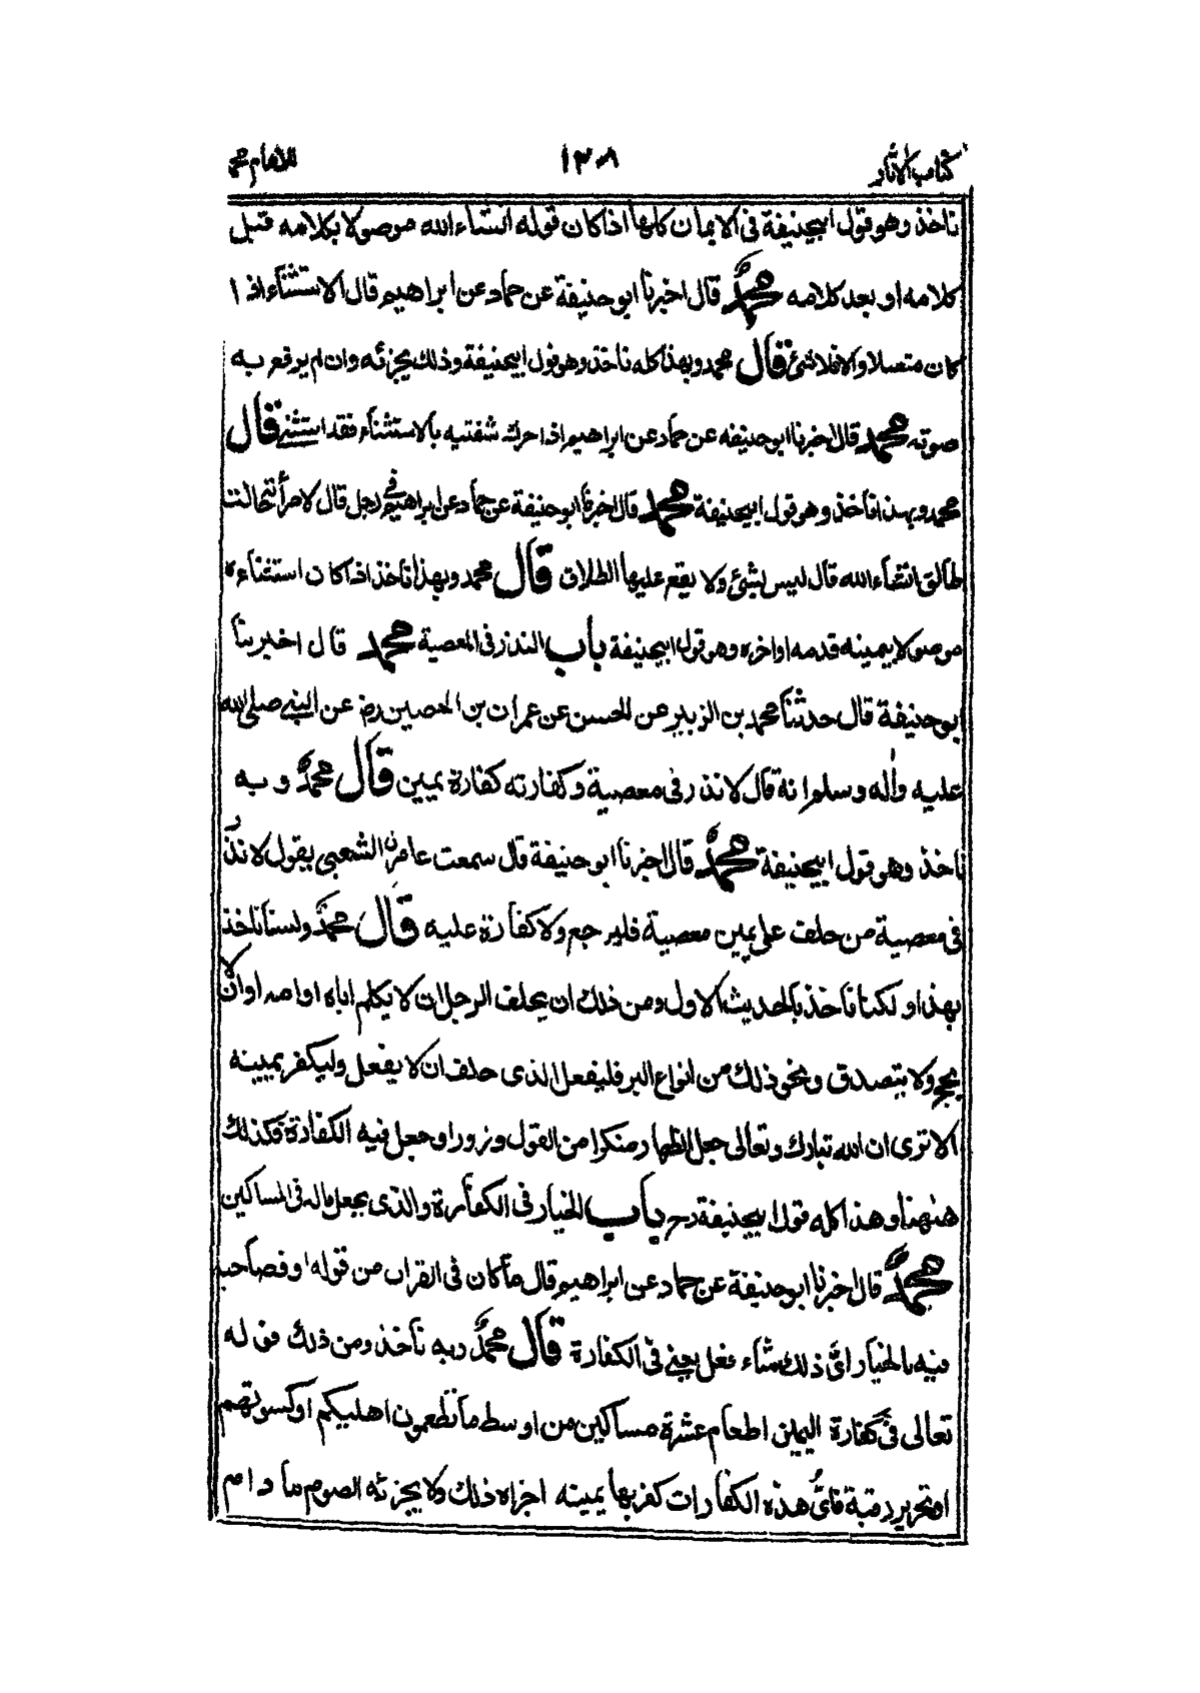 كتاب الاثار ١٣٠٨ للامام محمد
ناخذ وهو قول ابيحنيفة في الايمان كلها اذا كان قوله انشاء الله موصولا بكلامه قبل
كلامه او بعد كلامه محمد قال اخبرنا ابو حنيفة عن حماد عن ابراهيم قال الاستثناء اذا
كان متصلا والا فلا شئ قال محمد وبهذا كله ناخذ وهو قول ابيحنيفة وذلك يجزئه وان لم يرفع به
صوته محمد قال اخبرنا ابو حنيفه عن حماد عن ابراهيم اذا حرك شفتيه بالاستثناء فقد استثنى قال
محمد وبهذا ناخذ وهو قول ابيحنيفة محمد قال اخبرنا ابو حنيفة عن حماد عن ابراهيم في رجل قال لامرأته انت
طالق انشاء الله قال ليس بشئ ولا يقع عليها الطلاق قال محمد وبهذا ناخذ اذا كان استثناءه
موصولا بيمينه قدمه او اخره وهو قول ابيحنيفة باب النذر في المعصية محمد قال اخبرنا
ابو حنيفة قال حدثنا محمد بن الزبير عن الحسن عن عمران بن الحصين رض عن النبي صلى الله
عليه واله وسلم انه قال لا نذر في معصية وكفارته كفارة يمين قال محمد وبه
ناخذ وهو قول ابيحنيفة محمد قال اخبرنا ابو حنيفة قال سمعت عامرن الشعبي يقول لا نذر
في معصية من حلف على يمين معصية فليرجع ولا كفارة عليه قال محمد ولسنا ناخذ
بهذا ولكنا ناخذ بالحديث الاول ومن ذلك ان يحلف الرجل ان لا يكلم اباه او امه او ان لا
يحج ولا يتصدق ونحو ذلك من انواع البر فليفعل الذى حلف ان لا يفعل وليكفر يمينه
الا ترى ان الله تبارك وتعالى جعل الظهار منكرا من القول وزورا وجعل فيه الكفارة فكذلك
ههنا وهذا كله قول ابيحنيفة رح باب الخيار في الكفارة والذى يجعل ماله في المساكين
محمد قال اخبرنا ابو حنيفة عن حماد عن ابراهيم قال ما كان في القران من قوله او فصاحبه
فيه بالخيار اى ذلك شاء فعل يعني في الكفارة قال محمد وبه ناخذ ومن ذلك قوله
تعالى في كفارة اليمين اطعام عشرة مساكين من اوسط ما تطعمون اهليكم او كسوتهم
او تحرير رقبة فاى هذه الكفارات كفر بها يمينه اجزاه ذلك ولا يجزئه الصوم ما دام